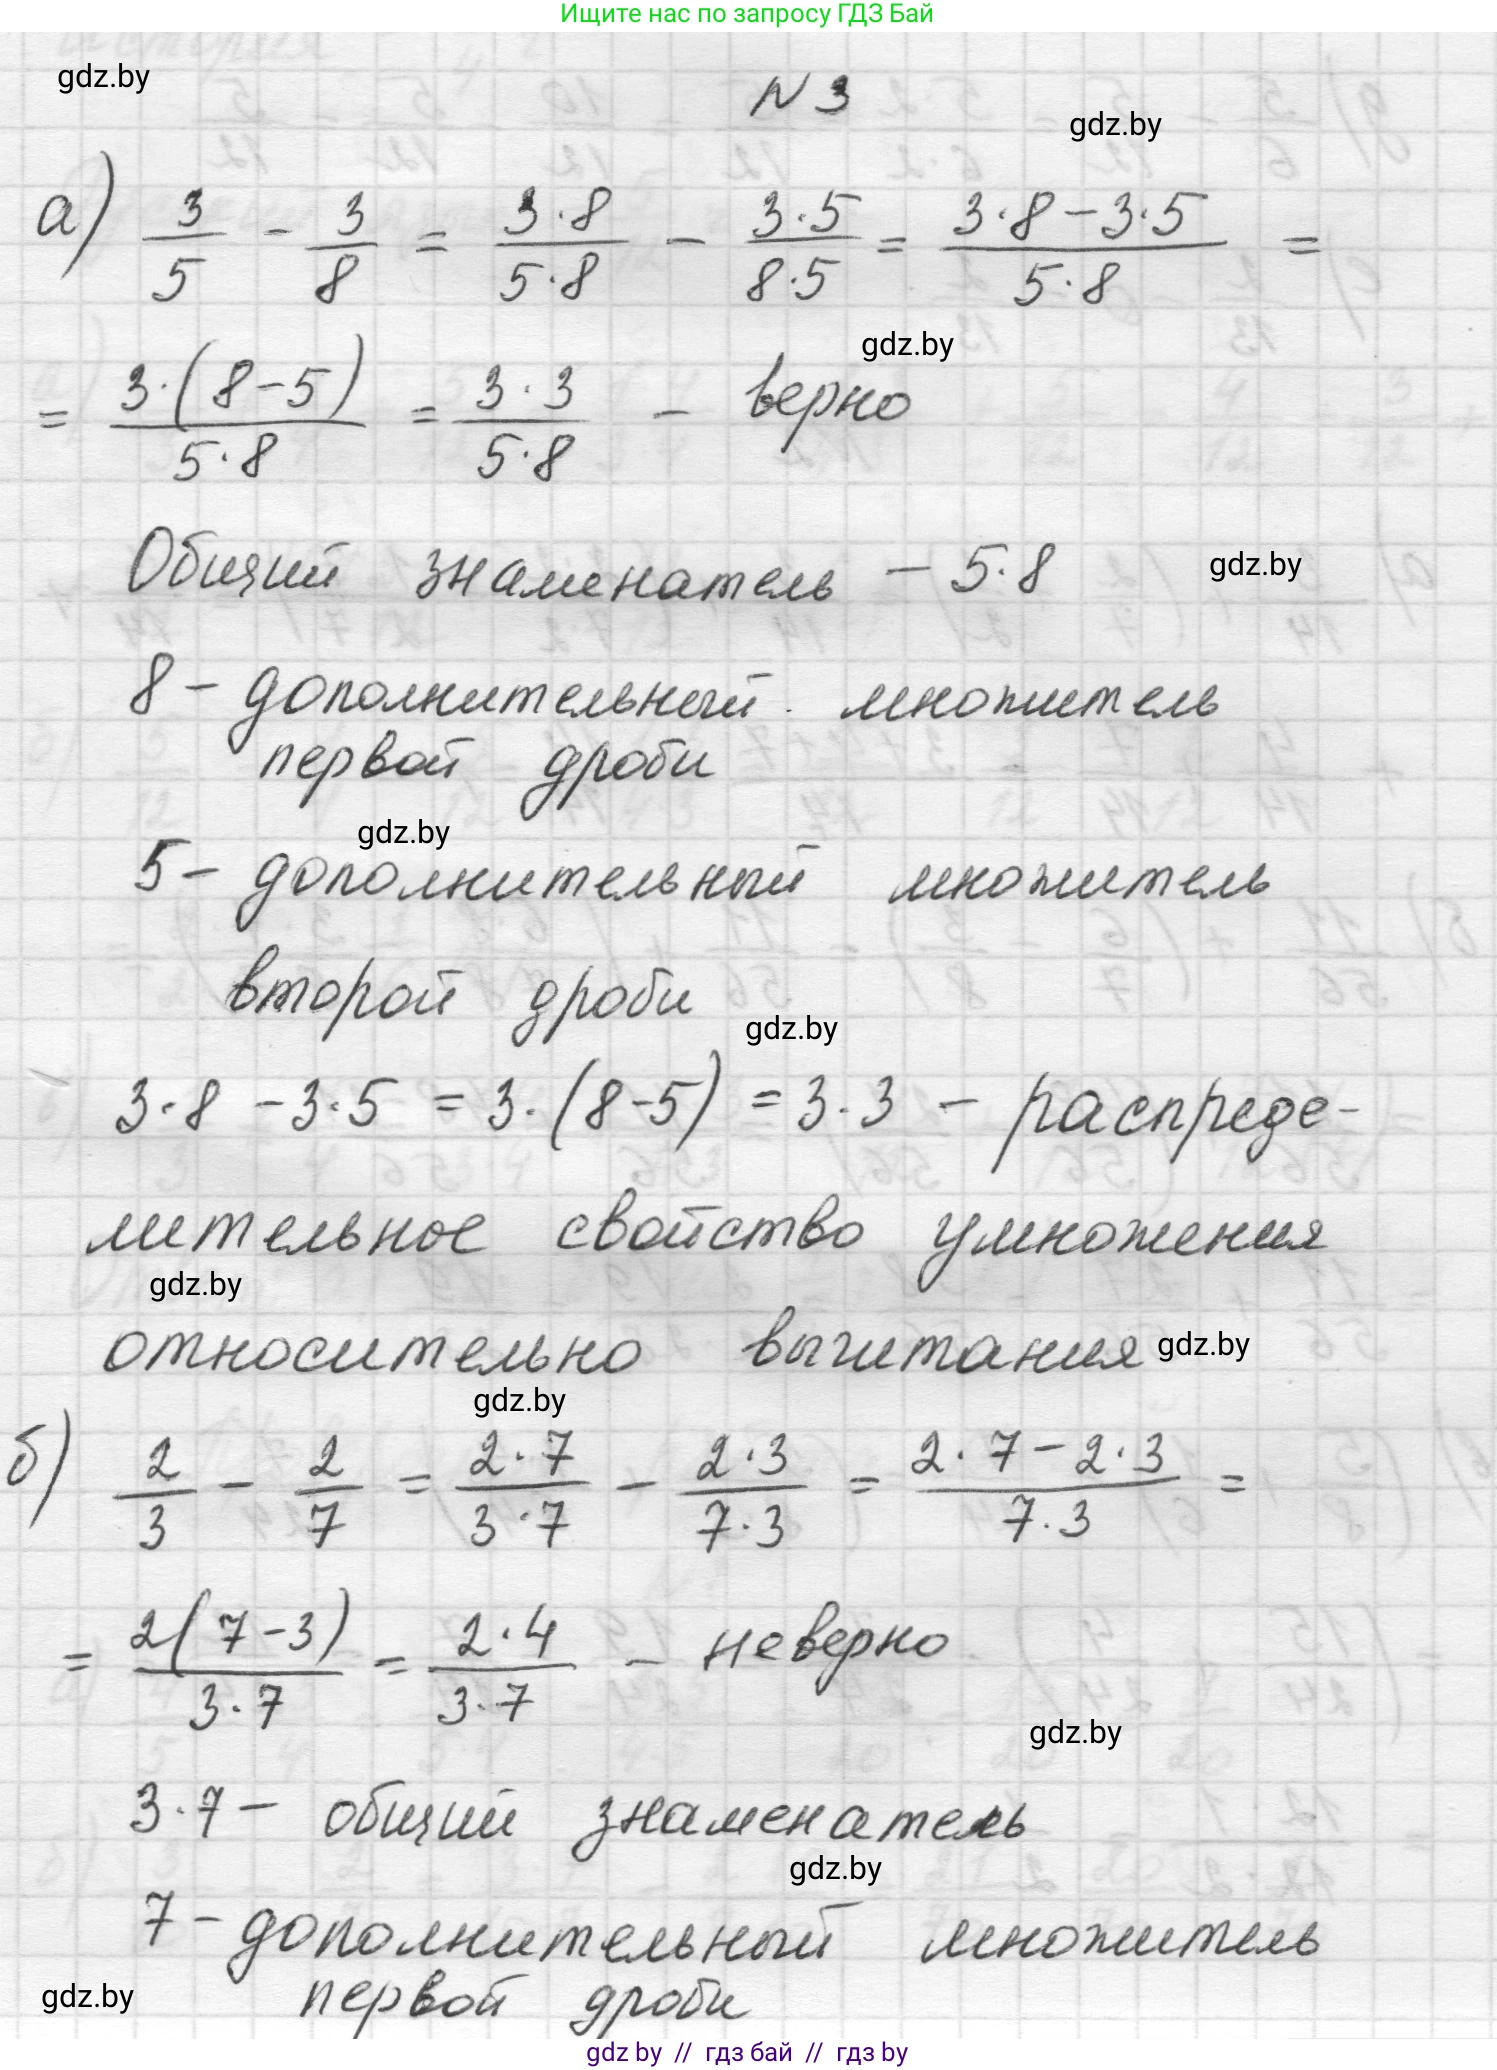 Ищите нас по запросу ГДЗ Бай
gdz.by
N 3
gdz.by
а) 3/5 - 3/8 = 3·8/5·8 - 3·5/8·5 = 3·8-3·5/5·8 =
gdz.by
= 3·(8-5)/5·8 = 3·3/5·8 - верно
Общий знаменатель - 5·8
gdz.by
8 - дополнительный множитель
первой дроби
gdz.by
5 - дополнительный множитель
второй дроби
gdz.by
3·8 - 3·5 = 3·(8-5) = 3·3 - распреде-
лительное свойство умножения
gdz.by
относительно вычитания
gdz.by
gdz.by
б) 2/3 - 2/7 = 2·7/3·7 - 2·3/7·3 = 2·7-2·3/7·3 =
= 2(7-3)/3·7 = 2·4/3·7 - неверно
gdz.by
3·7 - общий знаменатель
gdz.by
7 - дополнительный множитель
gdz.by
первой дроби
gdz by // гдз бай // гдз by